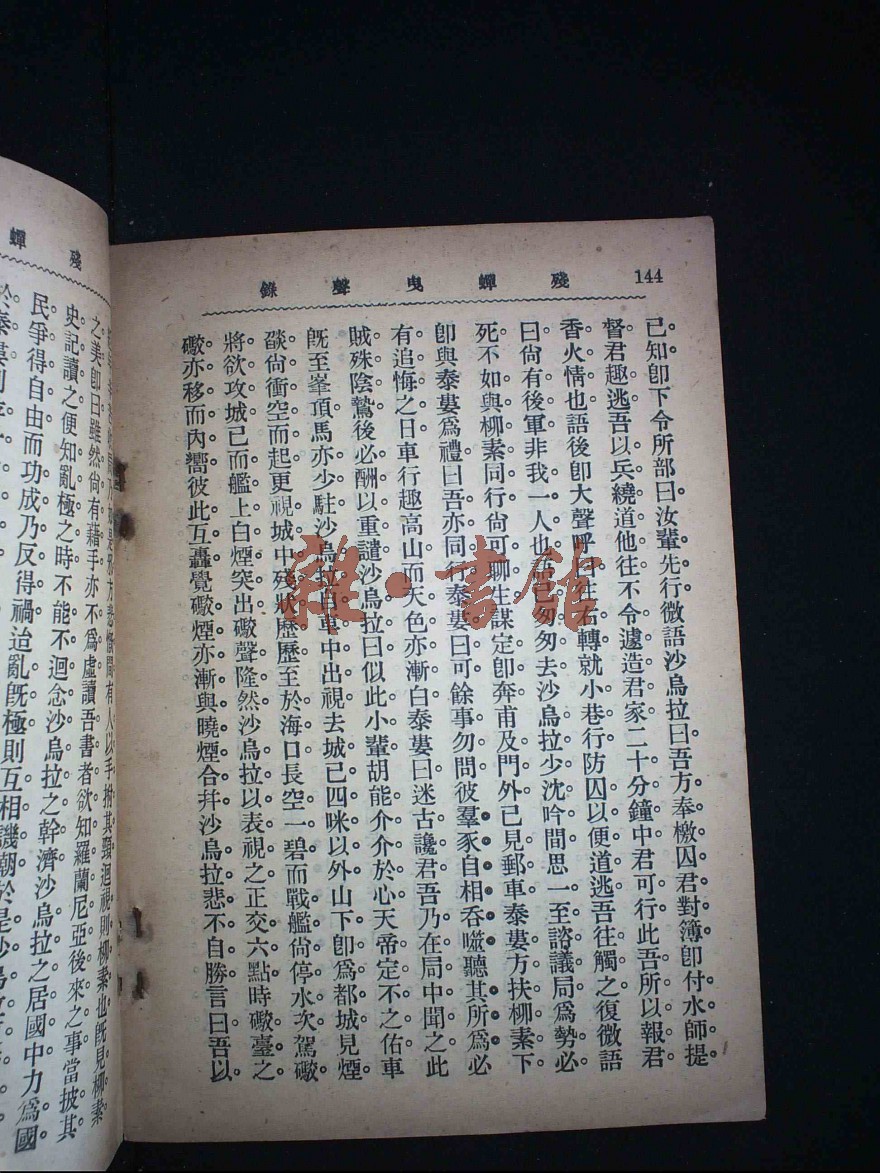 144
殘蟬曳聲錄
已知。卽下令所部曰。汝輩先行。微語沙烏拉曰。吾方奉檄囚君對簿。卽付水師提
督。君趣逃。吾以兵繞道他往。不令遽造君家。二十分鐘中。君可行。此吾所以報君
香火情也。語後卽大聲呼曰。往右轉就小巷行。防囚以便道逃。吾往觸之。復微語
曰。尙有後軍。非我一人也。語已匆匆去。沙烏拉少沈吟間。思一至諮議局。爲勢必
死。不如與柳素同行。尙可聊生。謀定卽奔。甫及門外。已見郵車。泰婁方扶柳素下。
卽與泰婁爲禮曰。吾亦同行。泰婁曰。可。餘事勿問。彼羣豕自相吞噬。聽其所爲。必
有追悔之日。車行趣高山。而天色亦漸白。泰婁曰。迷古讒君。吾乃在局中聞之。此
賊殊陰鷙。後必酬以重譴。沙烏拉曰。似此小輩。胡能介介於心。天帝定不之佑。車
旣至峯頂。馬亦少駐。沙烏拉自車中出視。去城已四咪以外。山下卽爲都城。見煙
燄尙衝空而起。更視城中殘狀歷歷。至於海口。長空一碧。而戰艦尙停水次。駕礮
將欲攻城。已而艦上白煙突出。礮聲隆然。沙烏拉以表視之。正交六點時。礮臺之
礮亦移而內嚮。彼此互轟。覺礮煙亦漸與曉煙合幷。沙烏拉悲不自勝。言曰。吾以
殘蟬
方悲慨間。有人以手拊其頸。迴視則柳素也。旣見柳素
之美。卽曰。雖然。尙有藉手。亦不爲虛。讀吾書者。欲知羅蘭尼亞後來之事。當披其
史記讀之。便知亂極之時。不能不迴念沙烏拉之幹濟。沙烏拉之居國中。力爲國
民爭得自由。而功成乃反得禍。迨亂旣極。則互相譏嘲。於是沙烏拉
雜·書館